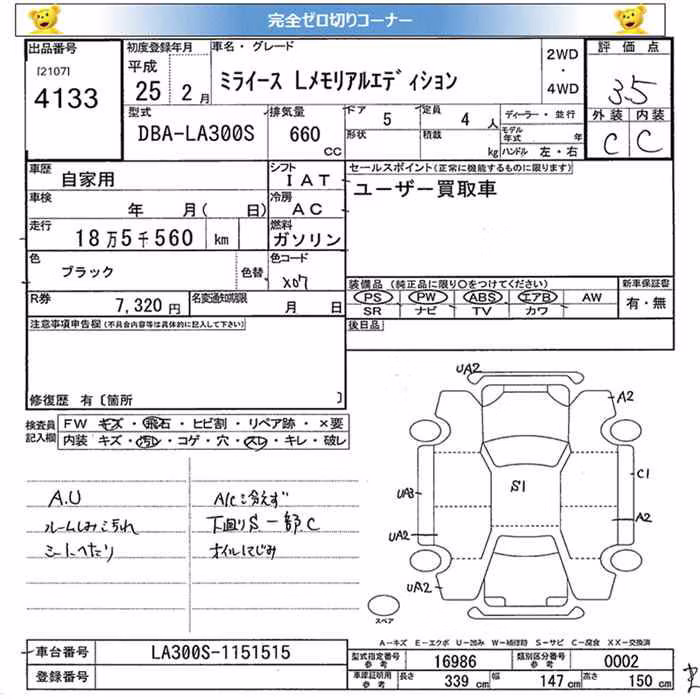 完全ゼロ切りコーナー
出品番号
[2107]
4133
初度登録年月
平成
25 2月
車名・グレード
ミライース Lメモリアルエディション
2WD
・
4WD
評価点
3.5
外装 内装
C C
型式
DBA-LA300S
排気量
660
CC
ドア 5
形状
定員 4 人
積載 kg
ディーラー・並行
モデル年式 年
ハンドル 左・右
車歴
自家用
シフト
I AT
車検
年 月( 日)
冷房
AC
走行
18万5千560 km
燃料
ガソリン
色
ブラック
色替
色コード
X07
R券
7,320円
名変通知期限
月 日
セールスポイント(正常に機能するものに限ります)
ユーザー買取車
装備品(純正品に限り○をつけてください)
PS PW ABS エアB AW
SR ナビ TV カワ
新車保証書
有・無
後日品
注意事項申告欄(不具合内容等は具体的に記入して下さい)
修復歴 有〔箇所 〕
検査員
記入欄
FW キズ・飛石・ヒビ割・リペア跡・×要
内装 キズ・汚レ・コゲ・穴・スレ・キレ・破レ
A.U
ルームしみこゲ汚れ
シートへたり
A/C冷えず
下廻りS一部C
オイルにじみ
UA2
A2
UA3
S1
C1
UA2
A2
UA2
スペア
A-キズ E-エクボ U-凹み W-補修跡 S-サビ C-腐食 XX-交換済
車台番号
LA300S-1151515
登録番号
型式指定番号
参考
16986
類別区分番号
参考
0002
車庫証明用
参考
長さ 339 cm
幅 147 cm
高さ 150 cm